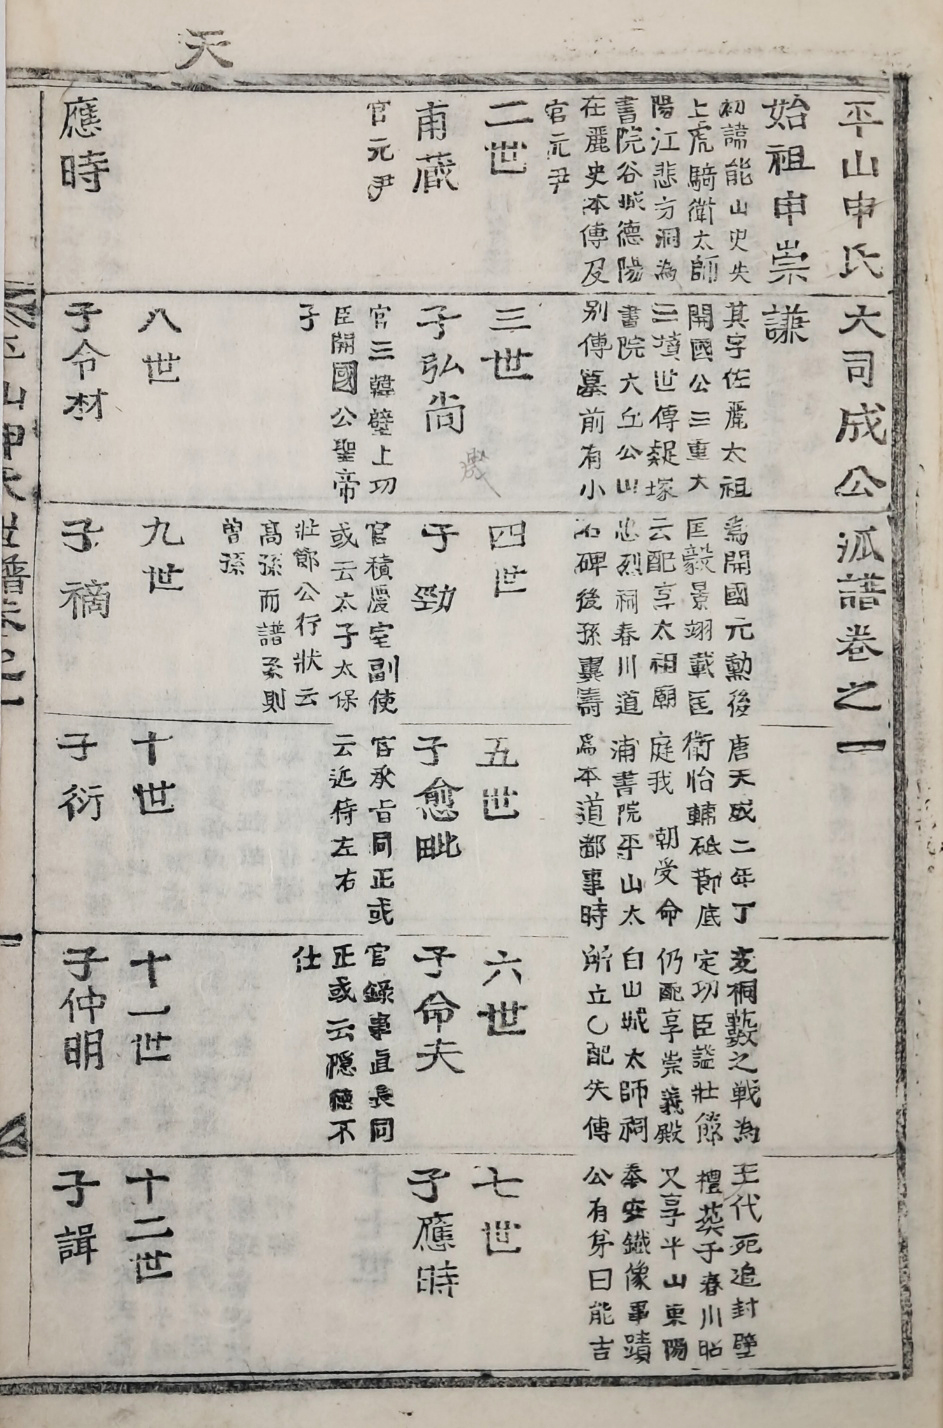 天
平山申氏大司成公派譜卷之一
始祖申崇謙
初諱能山史失其字佐麗太祖爲開國元勳後唐天成二年丁亥桐藪之戰為王代死追封壁
上虎騎衛太師開國公三重大匡毅景翊載匡衛怡輔砥節底定功臣諡壯節禮葬于春川昭
陽江悲方洞為三墳世傳疑塚云配享太祖廟庭我 朝受命仍配享崇義殿又享平山東陽
書院谷城德陽書院大丘公山忠烈祠春川道浦書院平山太白山城太師祠奉安鐵像事蹟
在麗史本傳及別傳墓前有小石碑後孫翼濤爲本道都事時所立〇配失傳公有弟曰能吉
官元尹
二世
甫藏
官元尹
三世
子弘尚
官三韓壁上功
臣開國公聖帝
子
四世
子勁
官積慶室副使
或云太子太保
壯節公行狀云
高孫而譜系則
曾孫
五世
子愈毗
官承旨同正或
云近侍左右
六世
子命夫
官錄事直長同
正或云隱德不
仕
七世
子應時
應時
八世
子令材
九世
子禘
十世
子衍
十一世
子仲明
十二世
子諿
平山申氏世譜卷之一
一